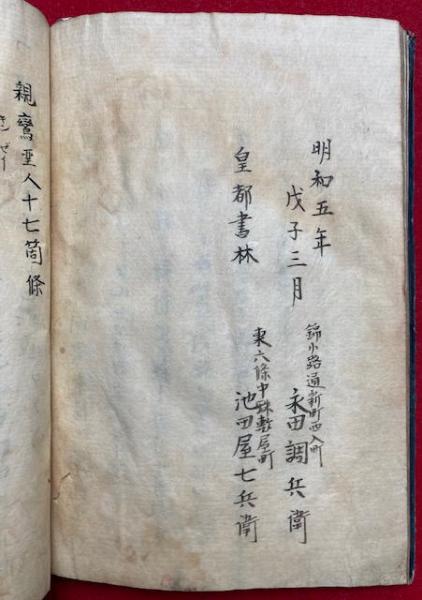 明和五年
戊子三月
錦小路通新町西入町
永田調兵衛
皇都書林
東六條中珠數屋町
池田屋七兵衛
親鸞聖人十七箇條